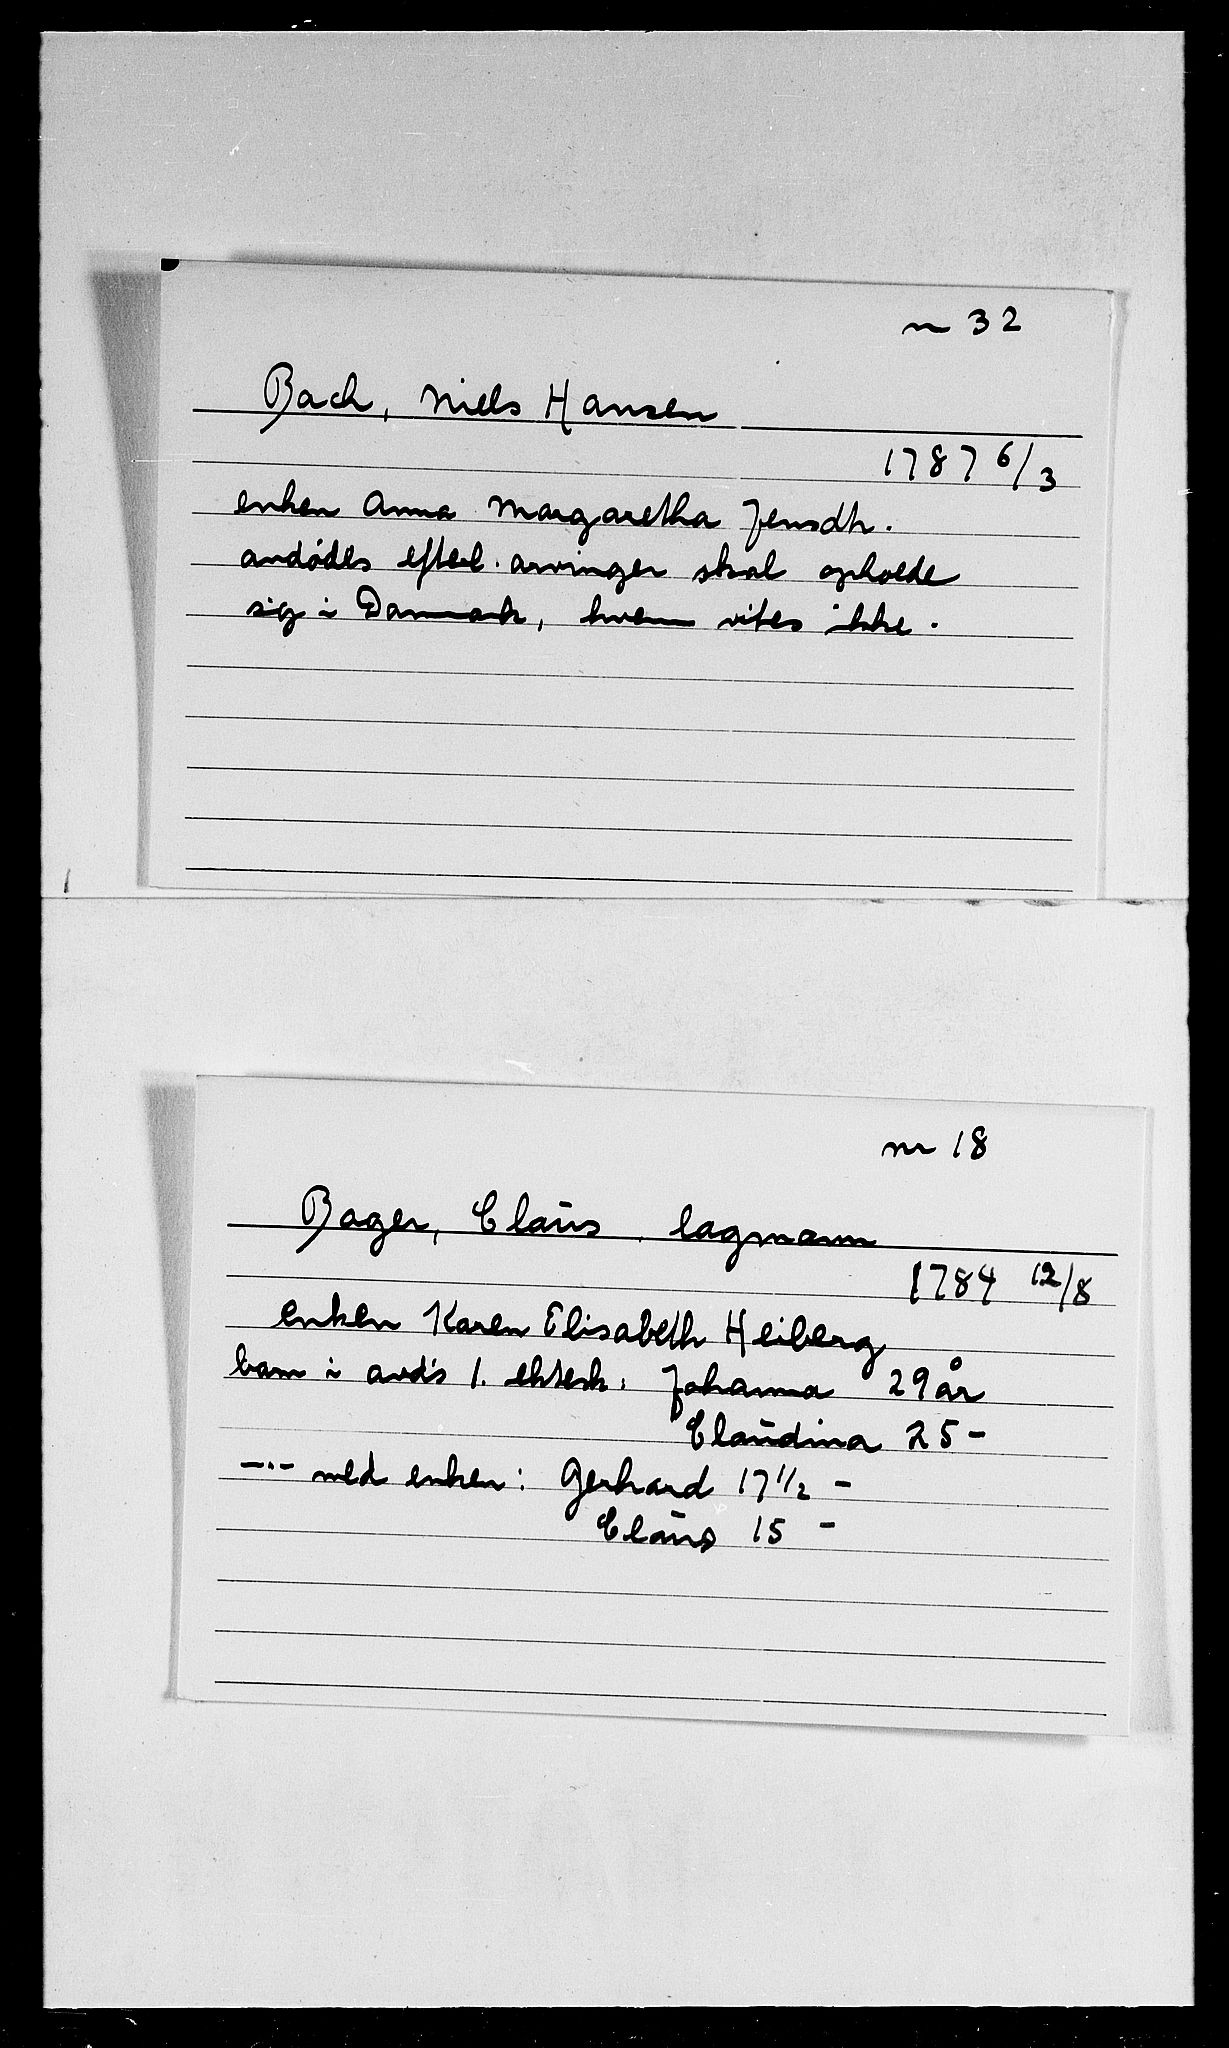 nr 32
Bach, Niels Hansen
1787 6/3
enken Anna Margaretha Jensdtr.
avdødes efterl. arvinger skal opholde
sig i Danmark, hvem vites ikke.
nr 18
Bager, Claüs, lagmann
1784 12/8
enken Karen Elisabeth Heiberg
barn i avd's 1. ektesk. Johanna 29 år
Claüdina 25 -
-"- med enken: Gerhard 17 1/2 -
Claüs 15 -